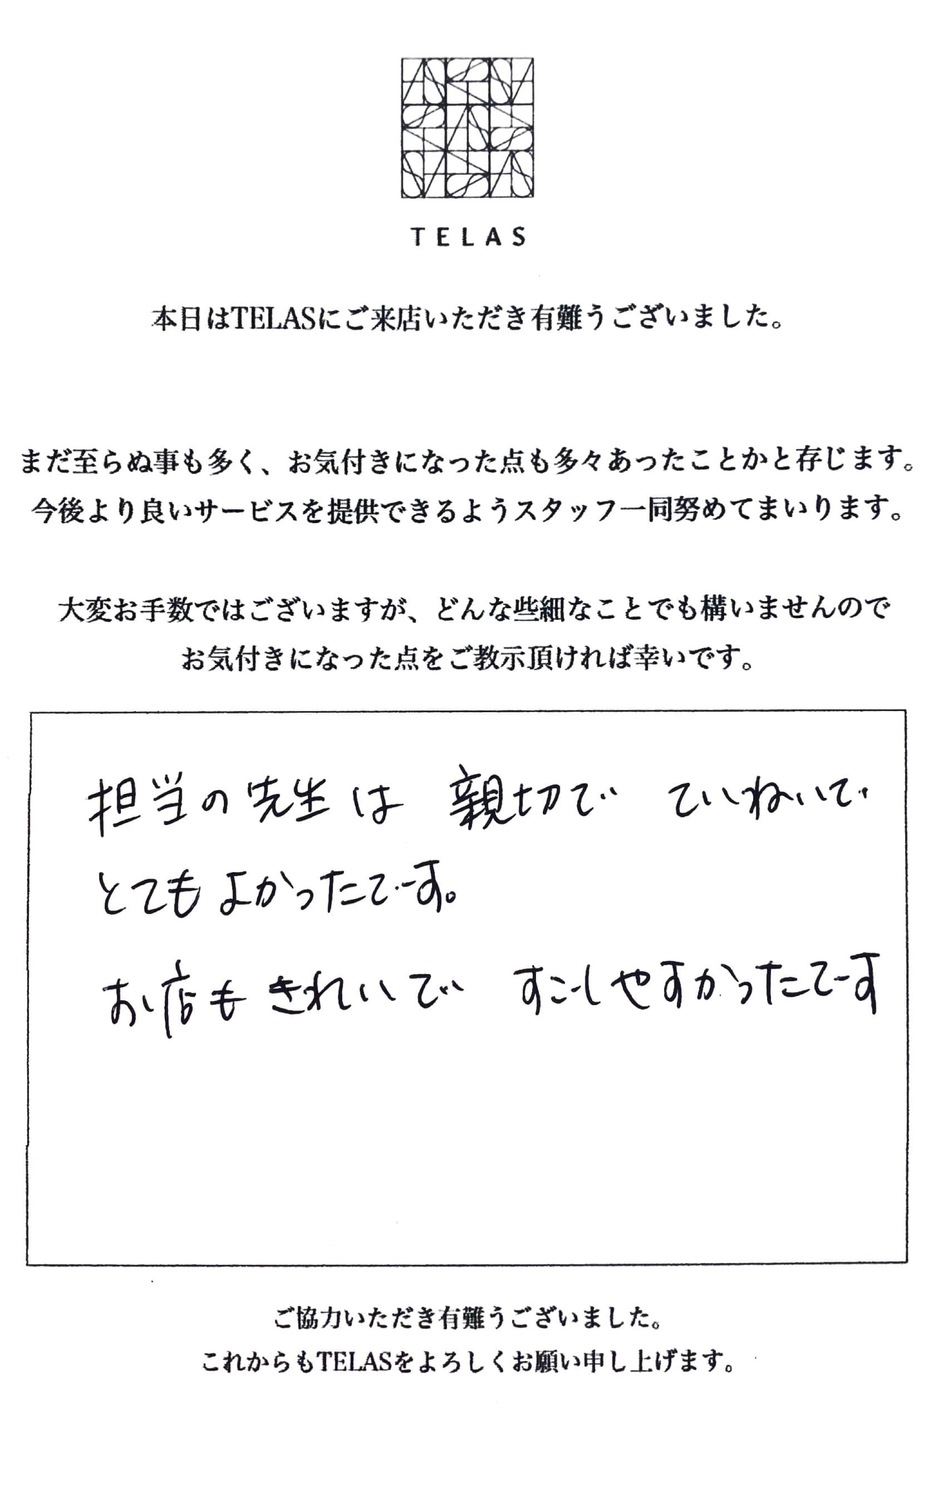 TELAS
本日はTELASにご来店いただき有難うございました。
まだ至らぬ事も多く、お気付きになった点も多々あったことかと存じます。
今後より良いサービスを提供できるようスタッフ一同努めてまいります。
大変お手数ではございますが、どんな些細なことでも構いませんので
お気付きになった点をご教示頂ければ幸いです。
担当の先生は 親切で ていねいで
とてもよかったです。
お店もきれいで すごしやすかったです
ご協力いただき有難うございました。
これからもTELASをよろしくお願い申し上げます。